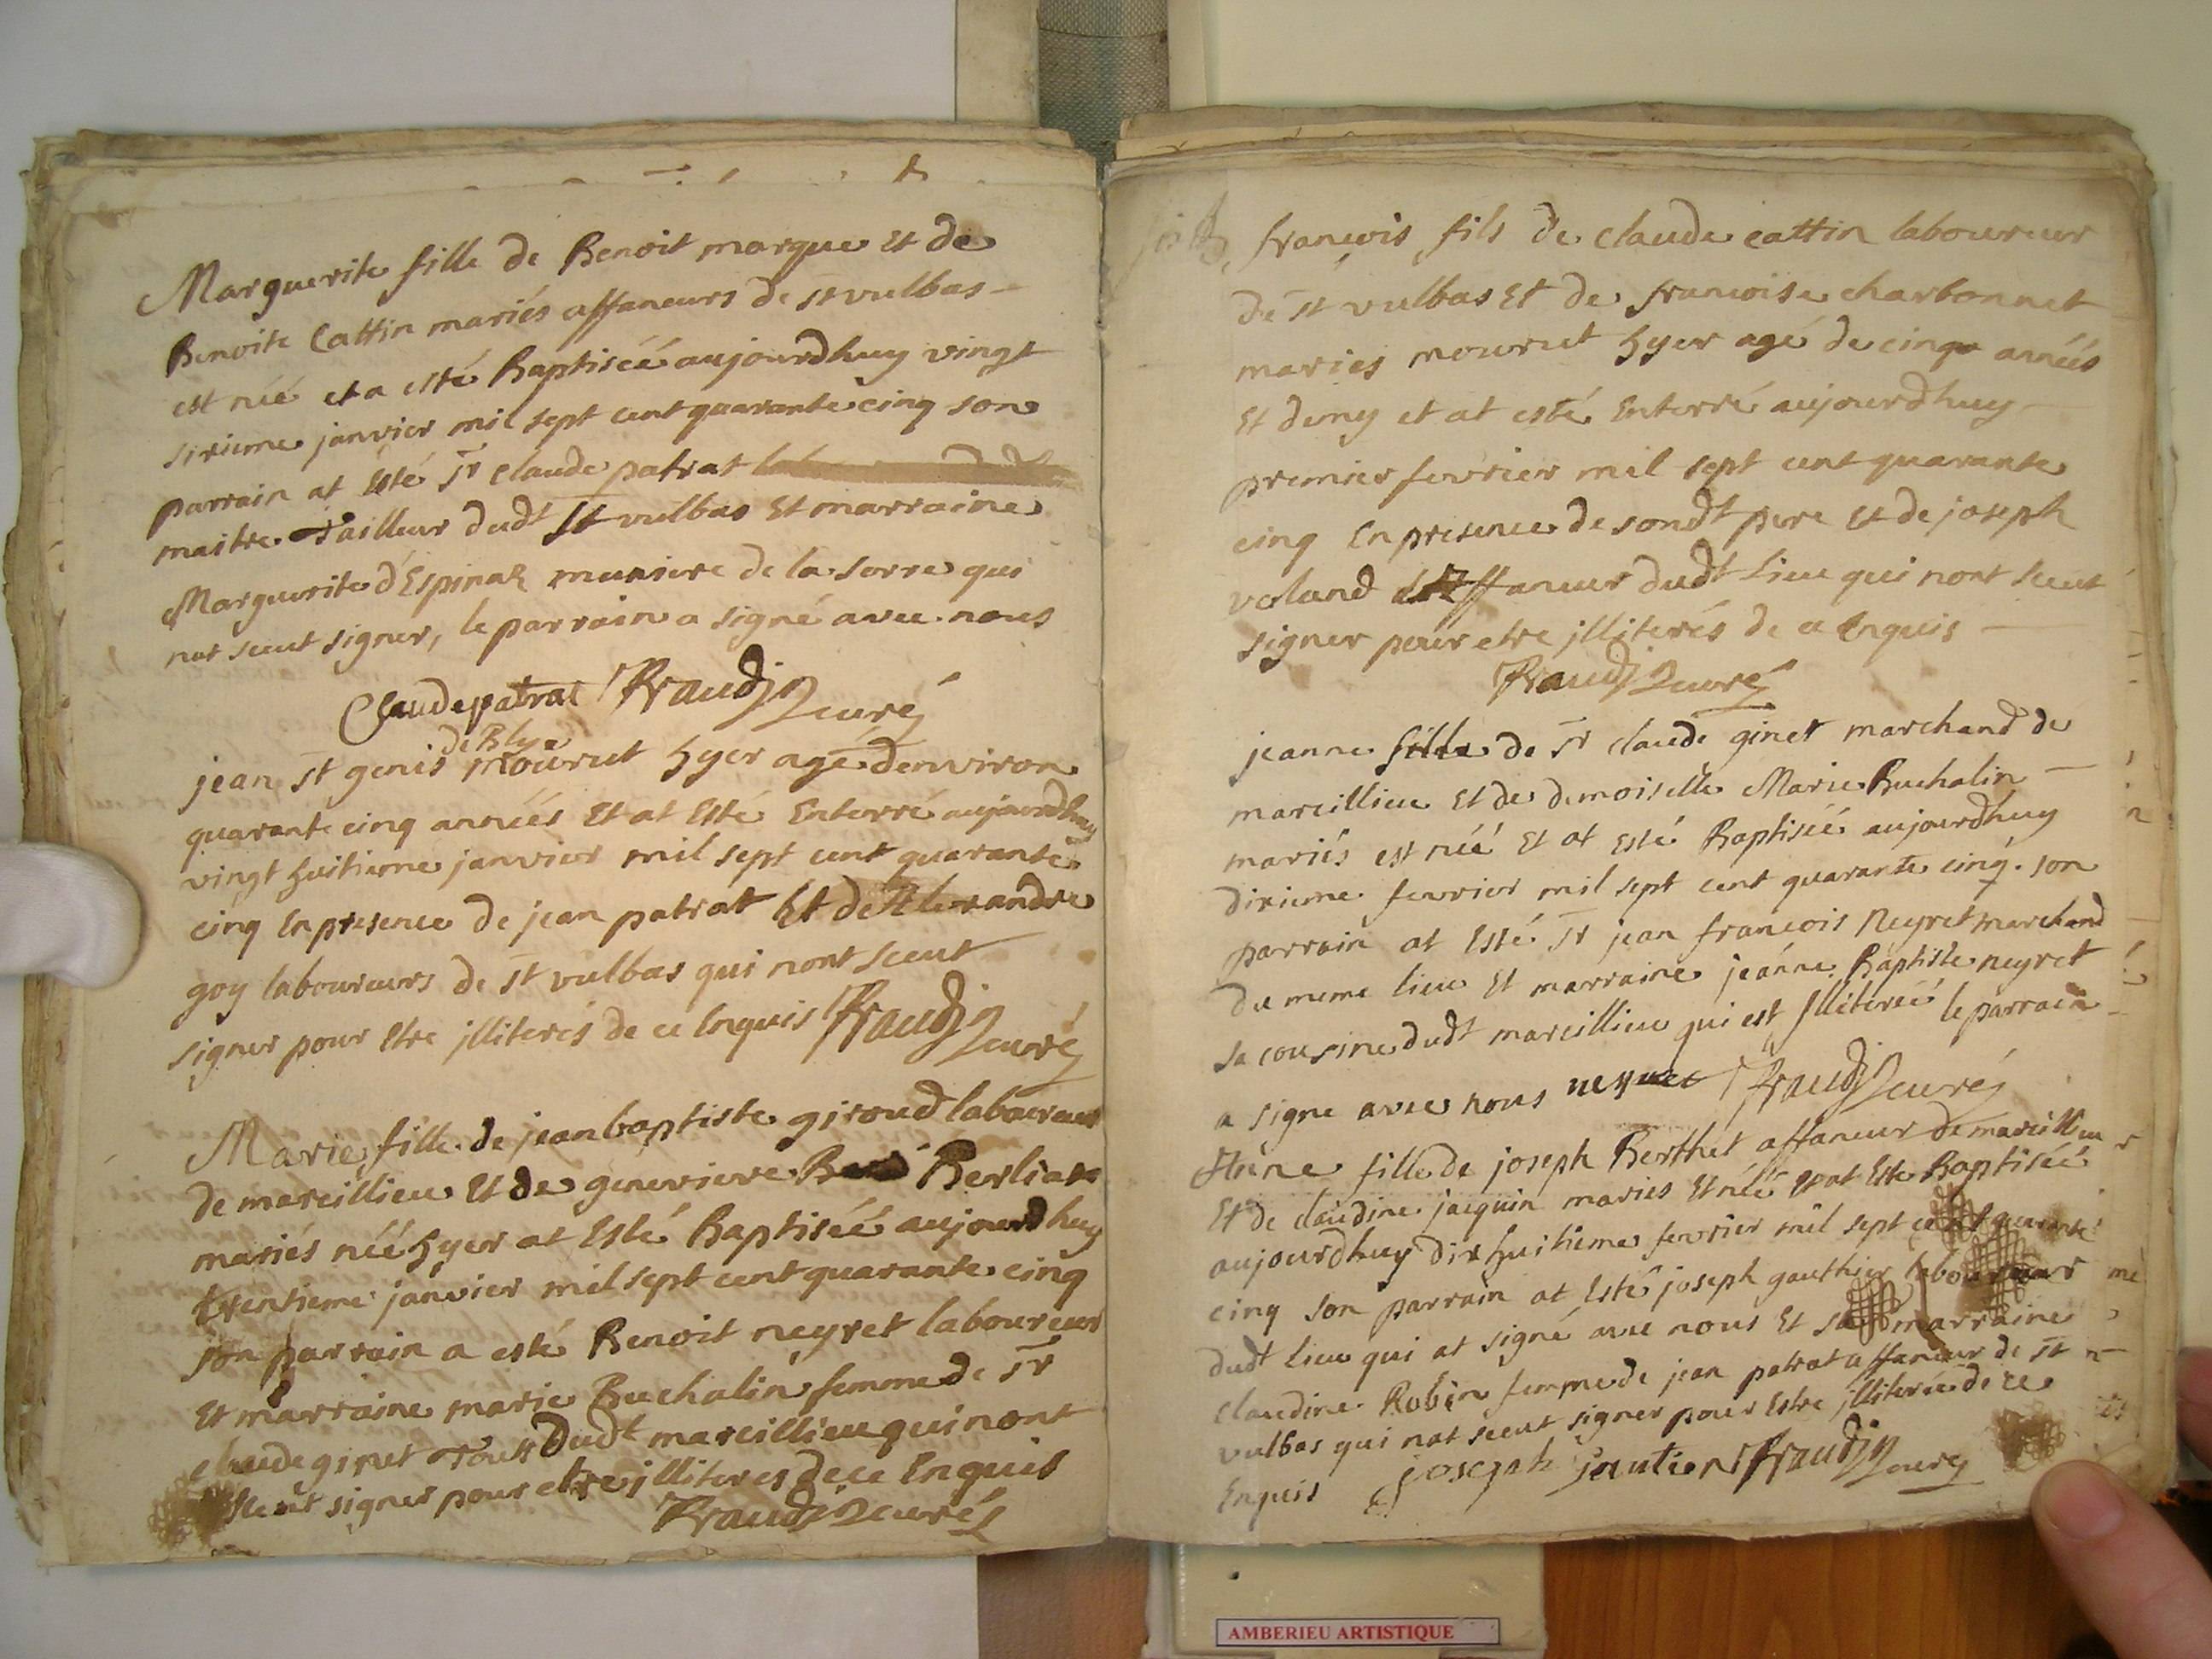 Marguerite fille de Benoit marque Et de
Benoite Cattin mariés affaneurs de st vulbas
est néé et a esté Baptiséé aujourdhuy vingt
sixieme janvier mil sept cent quarante cinq son
parrain at Esté sr claude patrat
maitre Tailleur dudt St vulbas Et marraine
Marguerite d'Espinas de la serre qui
nat sceut signer, le parrain a signé avec nous
Claude patrat Fraudin curé
de Blye
jean st genis mourut hyer agé denviron
quarante cinq annéés Et at Esté Enterré aujourdhuy
vingt huitieme janvier mil sept cent quarante
cinq En presence de jean patrat Et de Alexandre
goy laboureurs de st vulbas qui nont sceut
signer pour Etre jlliterés de ce Enquis Fraudin curé
Marie fille de jean baptiste giroud laboureur
de marcillieu Et de genevieve Berliat
mariés néé hyer at Esté Baptiséé aujourdhuy
trentieme janvier mil sept cent quarante cinq
son parrain a esté Benoit neyret laboureur
Et marraine marie Buchalin femme de sr
claude ginet Tous dudt marcillieu qui nont
sceut signer pour etre jlliteres de ce Enquis
Fraudin curé
françois fils de claude cattin laboureur
de st vulbas Et de francoise charbonnet
mariés mourut hyer agé de cinq annéés
Et demy et at esté Enterré aujourdhuy
premier fevrier mil sept cent quarante
cinq En presence de sondt pere et de joseph
voland affaneur dudt Lieu qui nont sceut
signer pour etre jlliterés de ce Enquis
Fraudin curé
jeanne fille de sr claude ginet marchand de
marcillieu Et de demoiselle Marie Buchalin
mariés est néé Et at esté Baptiséé aujourdhuy
dixieme fevrier mil sept cent quarante cinq. son
parrain at Esté sr jean francois Neyret marchand
du meme lieu Et marraine jeanne Baptiste neyret
sa cousine dudt marcillieu qui est jlliteréé le parrain
a signe avec nous neyret Fraudin curé
Anne fille de joseph Berthet affaneur de marcillieu
Et de claudine jacquin mariés Et néé et at Este Baptiséé
aujourdhuy dix huitieme fevrier mil sept cent quarante
cinq son parrain at Esté joseph gauthier laboureur
dudt Lieu qui at signé avec nous Et sa marraine
claudine Robin femme de jean patrat affaneur de st
vulbas qui nat sceut signer pour Estre jlliterée de ce
Enquis joseph gautier Fraudin curé
AMBERIEU ARTISTIQUE